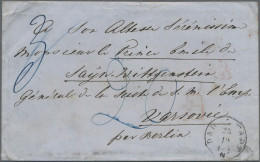 Son Altesse Sérénissime
Monsieur le Prince Emile de
Sayn-Wittgenstein
Général de la Suite de S. M. l'Emp.
Varsovie
par Berlin